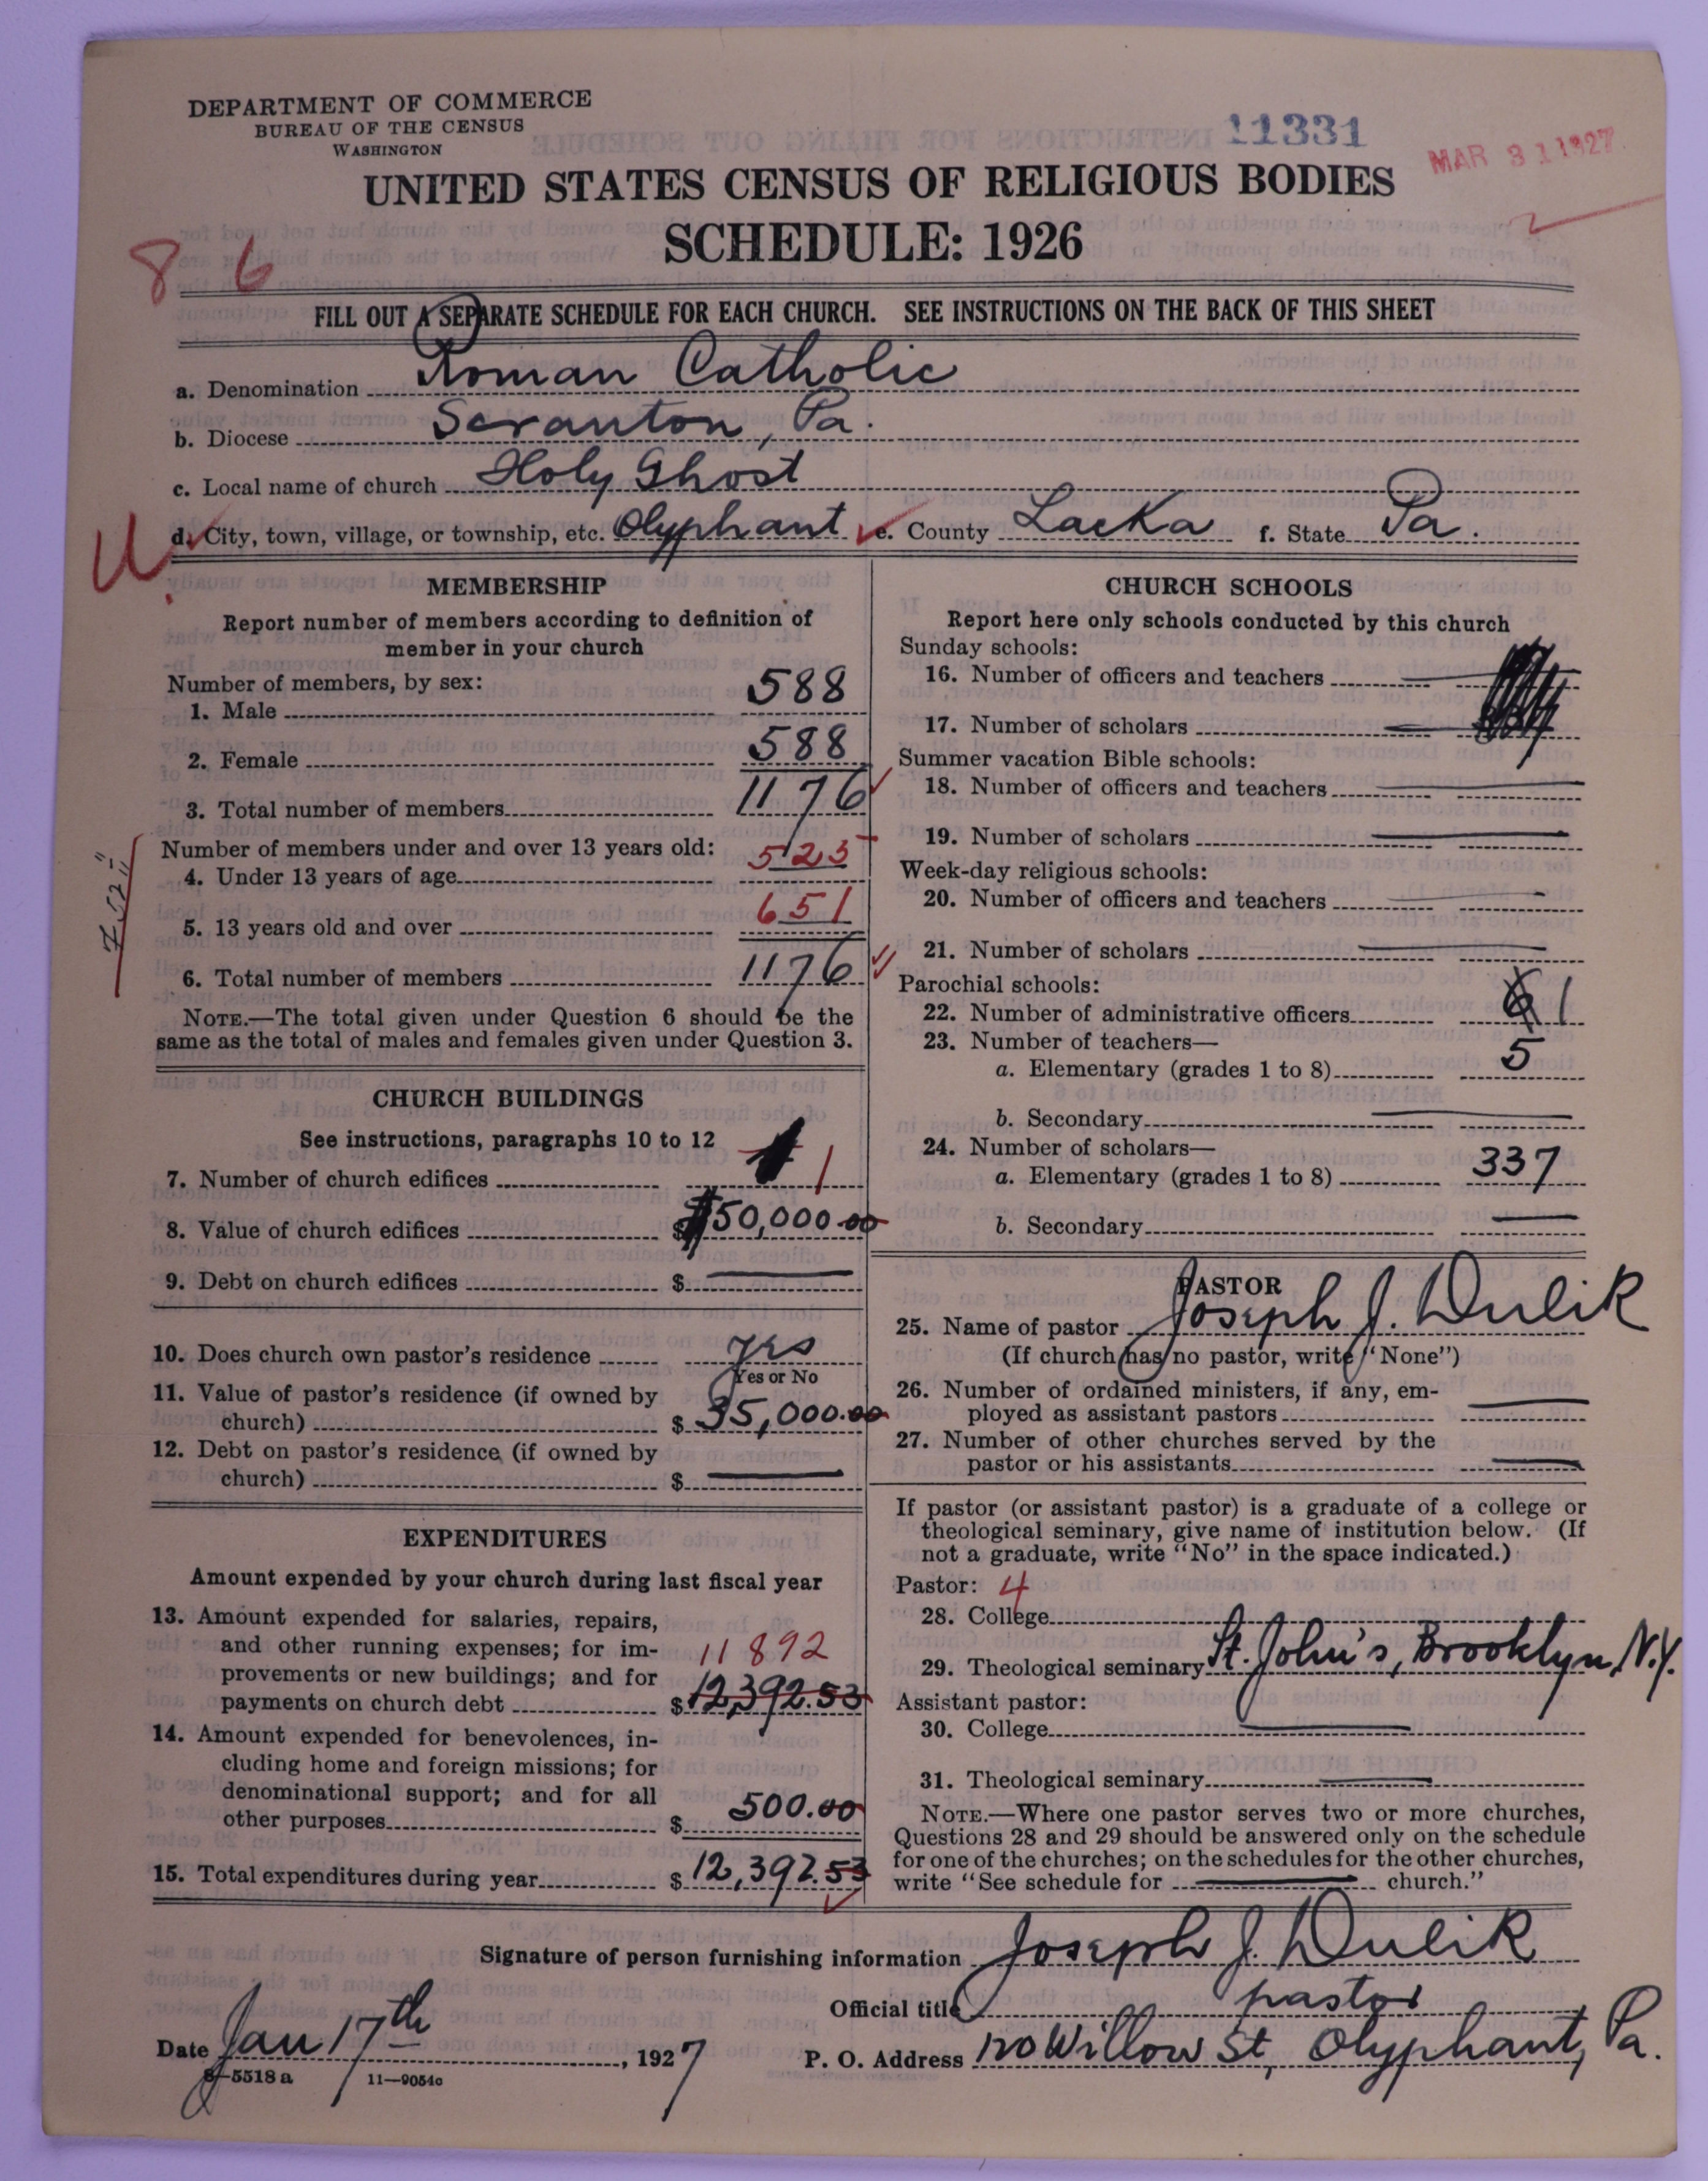 DEPARTMENT OF COMMERCE
BUREAU OF THE CENSUS
WASHINGTON
11331
MAR 31 1927
UNITED STATES CENSUS OF RELIGIOUS BODIES
SCHEDULE: 1926
8 6
FILL OUT A SEPARATE SCHEDULE FOR EACH CHURCH. SEE INSTRUCTIONS ON THE BACK OF THIS SHEET
a. Denomination Roman Catholic
b. Diocese Scranton, Pa.
c. Local name of church Holy Ghost
d. City, town, village, or township, etc. Olyphant e. County Lacka f. State Pa.
U
MEMBERSHIP
Report number of members according to definition of
member in your church
Number of members, by sex:
1. Male 588
2. Female 588
3. Total number of members 1176
Number of members under and over 13 years old:
4. Under 13 years of age 525
5. 13 years old and over 651
6. Total number of members 1176
NOTE.—The total given under Question 6 should be the
same as the total of males and females given under Question 3.
CHURCH BUILDINGS
See instructions, paragraphs 10 to 12
7. Number of church edifices 1
8. Value of church edifices $50,000.00
9. Debt on church edifices $
10. Does church own pastor's residence yes
Yes or No
11. Value of pastor's residence (if owned by
church) $ 35,000.00
12. Debt on pastor's residence (if owned by
church) $
EXPENDITURES
Amount expended by your church during last fiscal year
13. Amount expended for salaries, repairs,
and other running expenses; for im-
provements or new buildings; and for 11892
payments on church debt $ 12,392.53
14. Amount expended for benevolences, in-
cluding home and foreign missions; for
denominational support; and for all
other purposes $ 500.00
15. Total expenditures during year $ 12,392.53
CHURCH SCHOOLS
Report here only schools conducted by this church
Sunday schools:
16. Number of officers and teachers
17. Number of scholars
Summer vacation Bible schools:
18. Number of officers and teachers
19. Number of scholars
Week-day religious schools:
20. Number of officers and teachers
21. Number of scholars
Parochial schools:
22. Number of administrative officers 1
23. Number of teachers—
a. Elementary (grades 1 to 8) 5
b. Secondary
24. Number of scholars—
a. Elementary (grades 1 to 8) 337
b. Secondary
PASTOR
25. Name of pastor Joseph J. Dulik
(If church has no pastor, write "None")
26. Number of ordained ministers, if any, em-
ployed as assistant pastors
27. Number of other churches served by the
pastor or his assistants
If pastor (or assistant pastor) is a graduate of a college or
theological seminary, give name of institution below. (If
not a graduate, write "No" in the space indicated.)
Pastor: 4
28. College
29. Theological seminary St. John's, Brooklyn, N.Y.
Assistant pastor:
30. College
31. Theological seminary
NOTE.—Where one pastor serves two or more churches,
Questions 28 and 29 should be answered only on the schedule
for one of the churches; on the schedules for the other churches,
write "See schedule for church."
Signature of person furnishing information Joseph J. Dulik
Official title pastor
Date Jan 17th, 1927 P. O. Address 120 Willow St, Olyphant, Pa.
8—5518 a 11—9054c